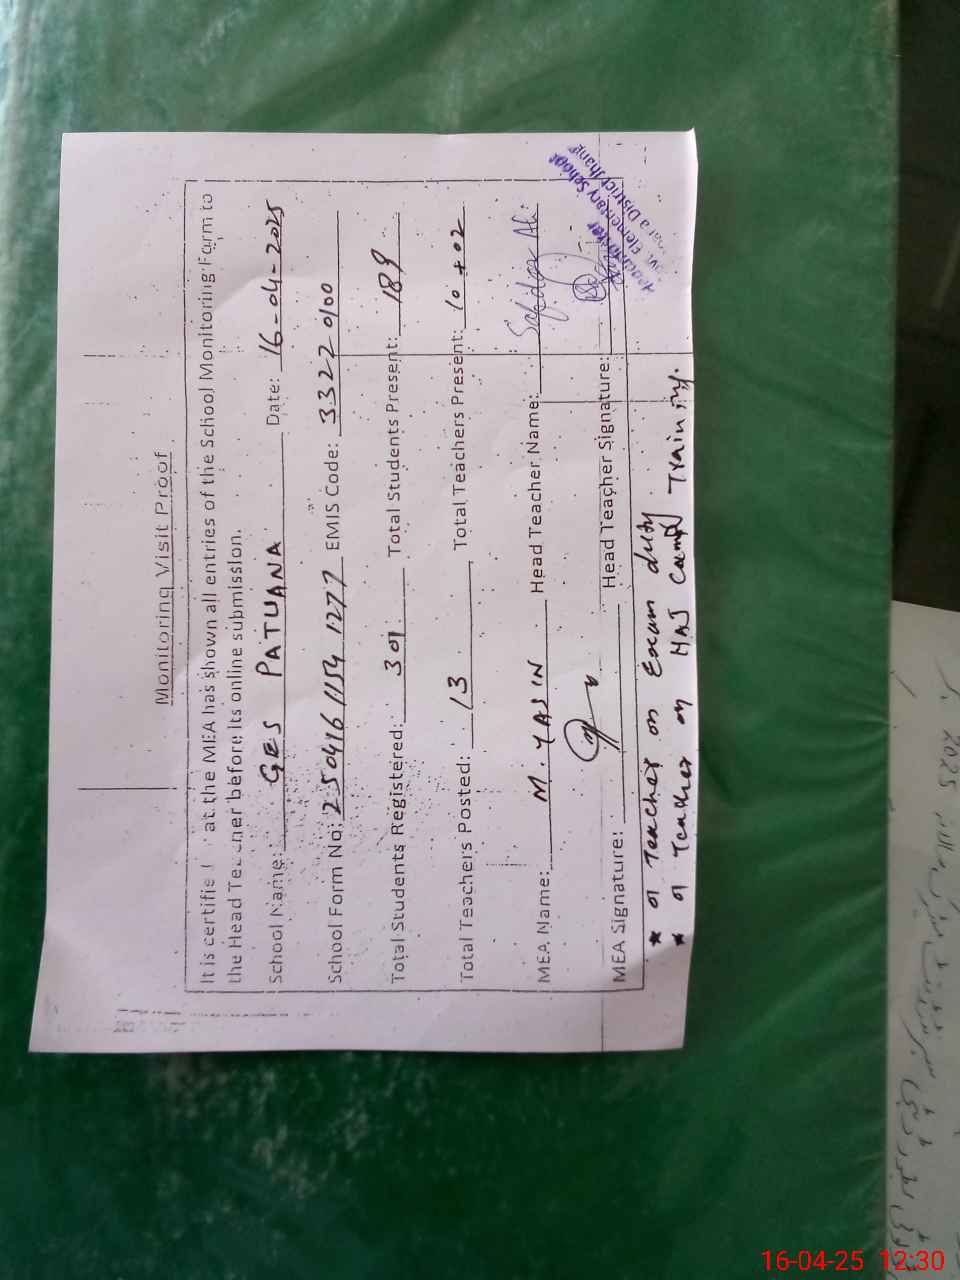 Monitoring Visit Proof
It is certifie at the MEA has shown all entries of the School Monitoring Form to
the Head Teacher before its online submission.
School Name: GES PATUANA Date: 16-04-2025
School Form No: 250416 1154 1277 EMIS Code: 3322 0100
Total Students Registered: 301 Total Students Present: 189
Total Teachers Posted: 13 Total Teachers Present: 10 + 02
MEA Name: M. YASIN Head Teacher Name: Safdar Ali
MEA Signature: Head Teacher Signature:
Headmaster
Govt. Elementary School
District Jhang
★ 01 Teacher on Exam duty
★ 01 Teacher on HAJ Camp Training.
2025
16-04-25 12:30